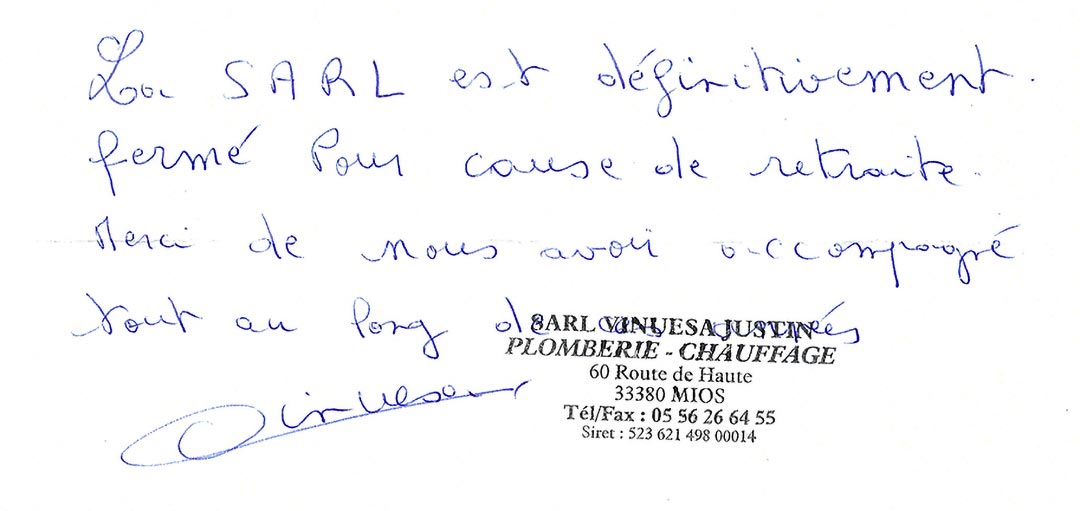 La SARL est définitivement.
fermé Pour cause de retraite.
Merci de nous avoir accompagné
tout au long de ces années
SARL VINUESA JUSTIN
PLOMBERIE - CHAUFFAGE
60 Route de Haute
33380 MIOS
Tél/Fax : 05 56 26 64 55
Siret : 523 621 498 00014
Vinuesa